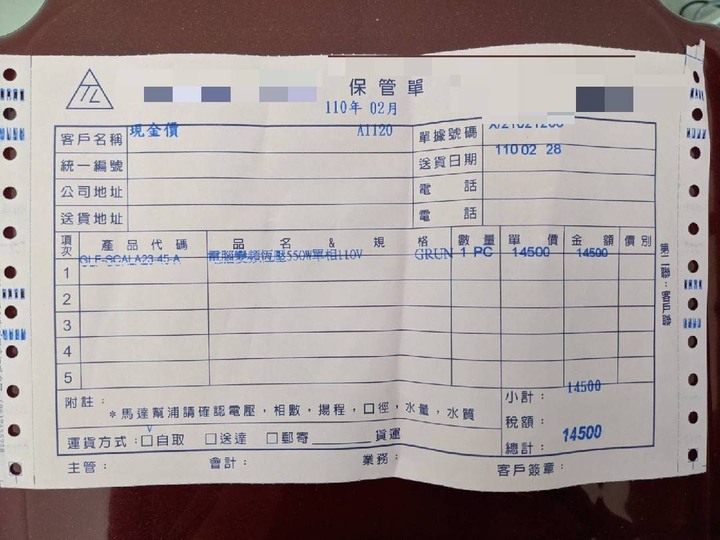 保管單
110年 02月
客戶名稱 現金價 A1120 單據號碼
統一編號 送貨日期 11002 28
公司地址 電話
送貨地址 電話
項次 產品代碼 品名 & 規格 數量 單價 金額 價別
1 GLF-SCALA23-45-A 電腦變頻恆壓550W單相110V GRUN 1 PC 14500 14500
2
3
4
5
第二聯：客戶聯
附註： 小計： 14500
*馬達幫浦請確認電壓，相數，揚程，口徑，水量，水質
稅額：
運貨方式：☐自取 ☐送達 ☐郵寄 貨運 總計： 14500
主管： 會計： 業務： 客戶簽章：